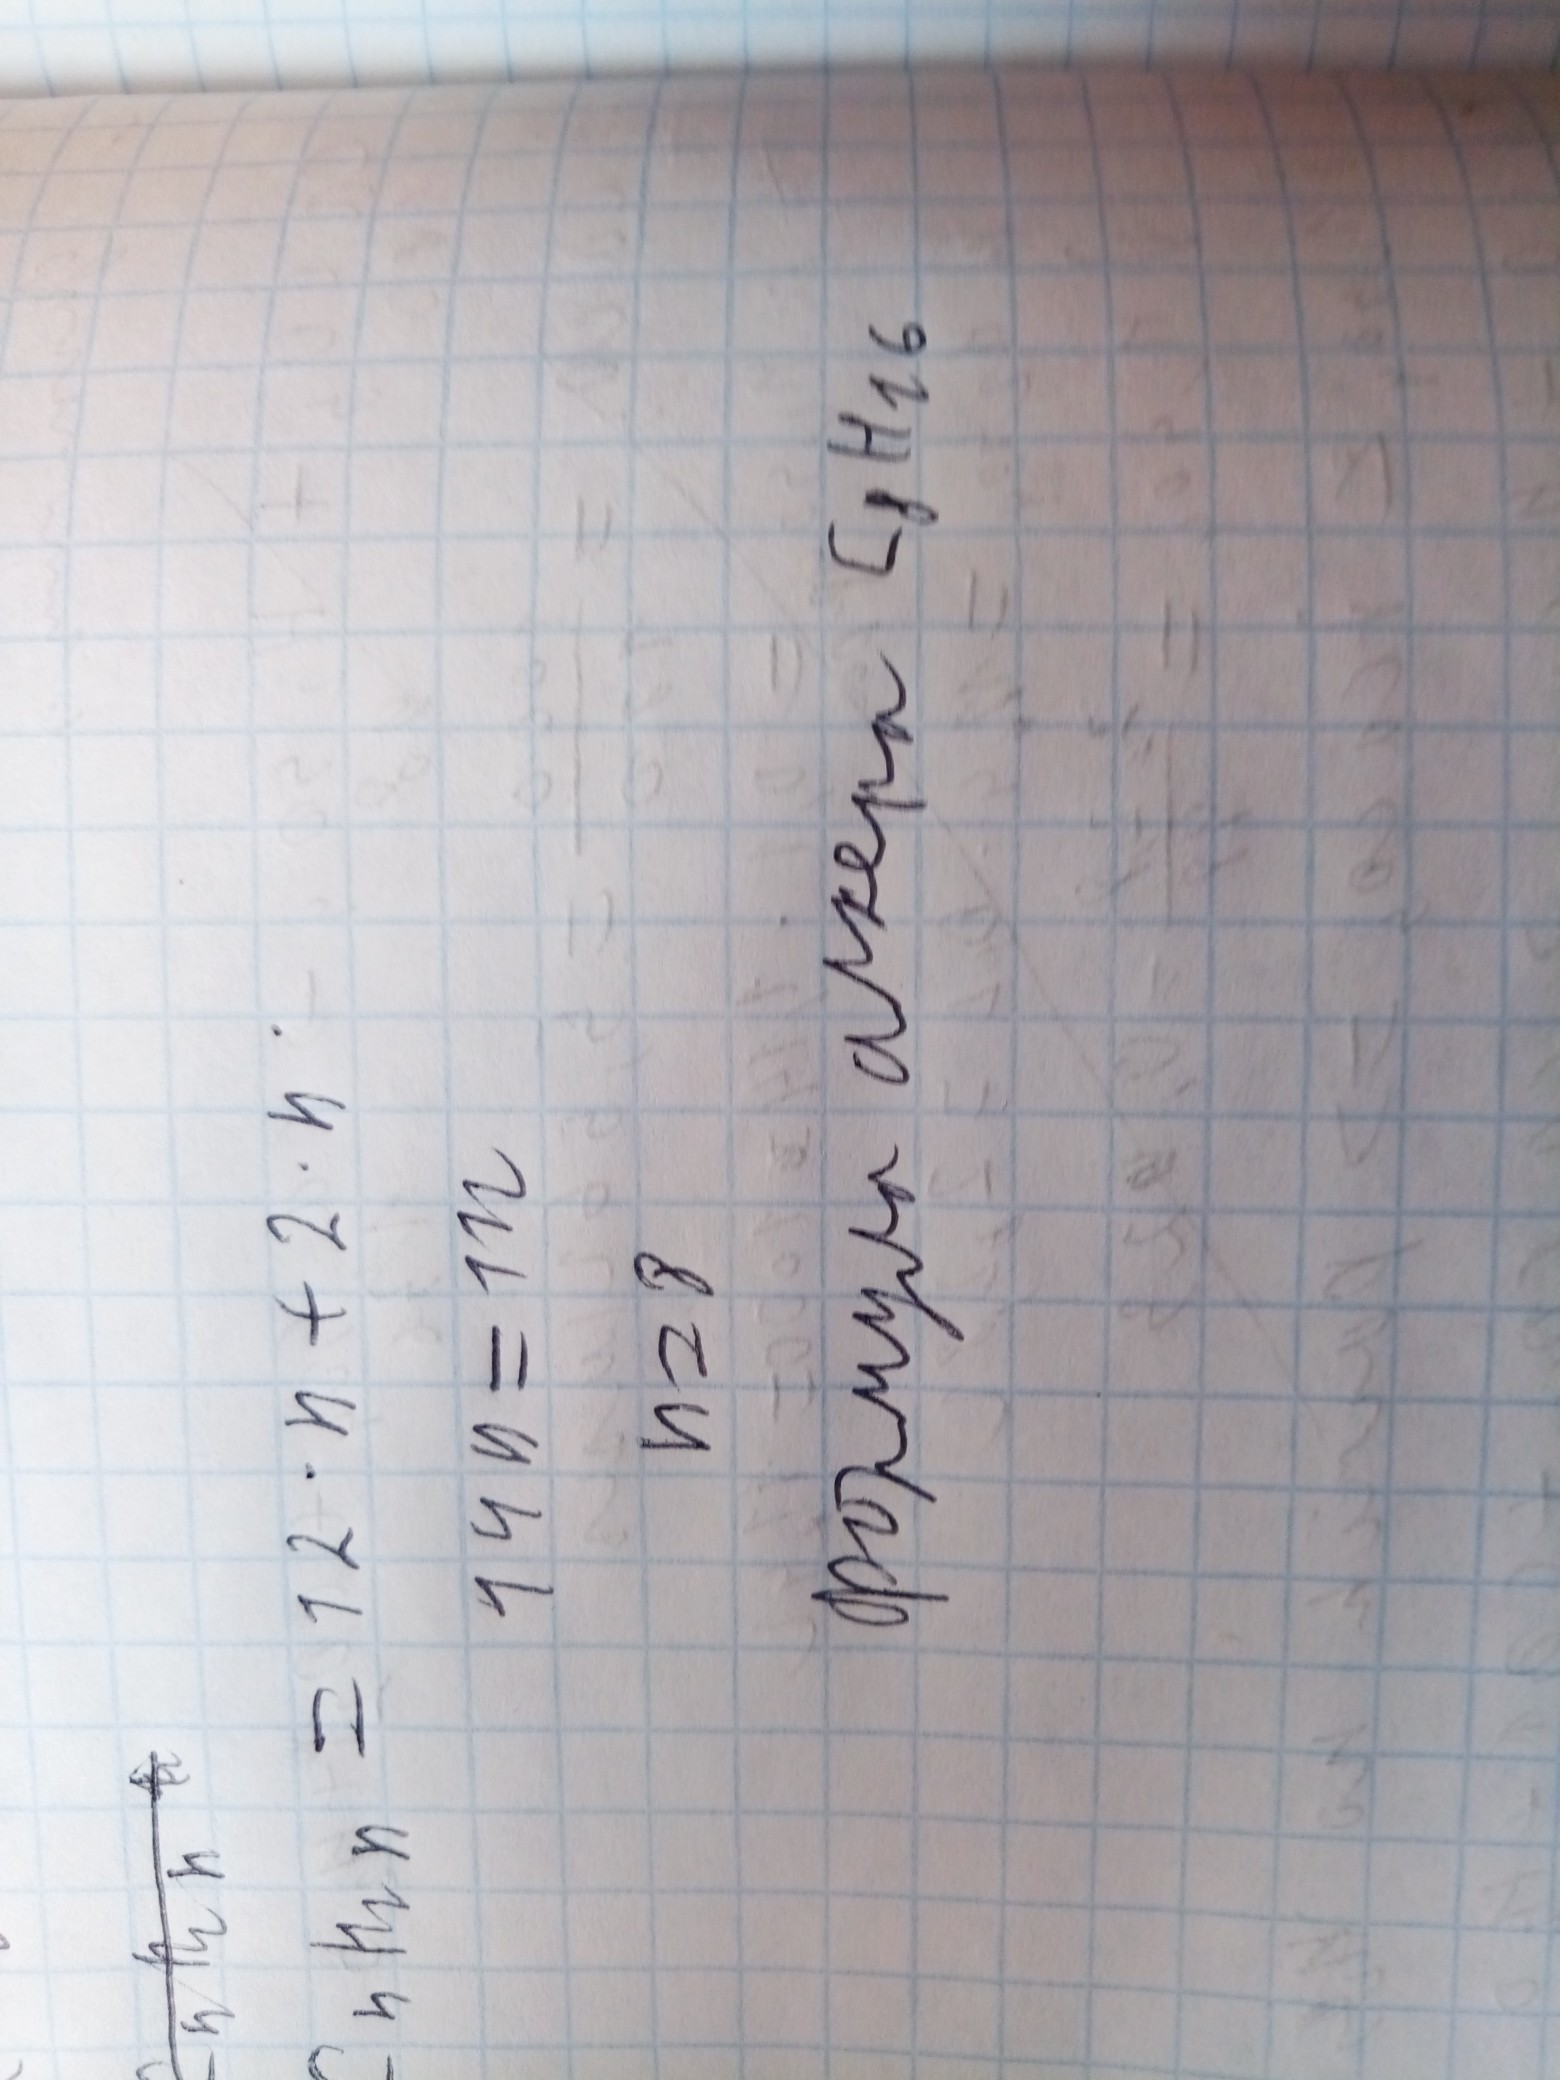 CnH2n = 12·n + 2·n
14n = 112
n = 8
формула алкена C8H16